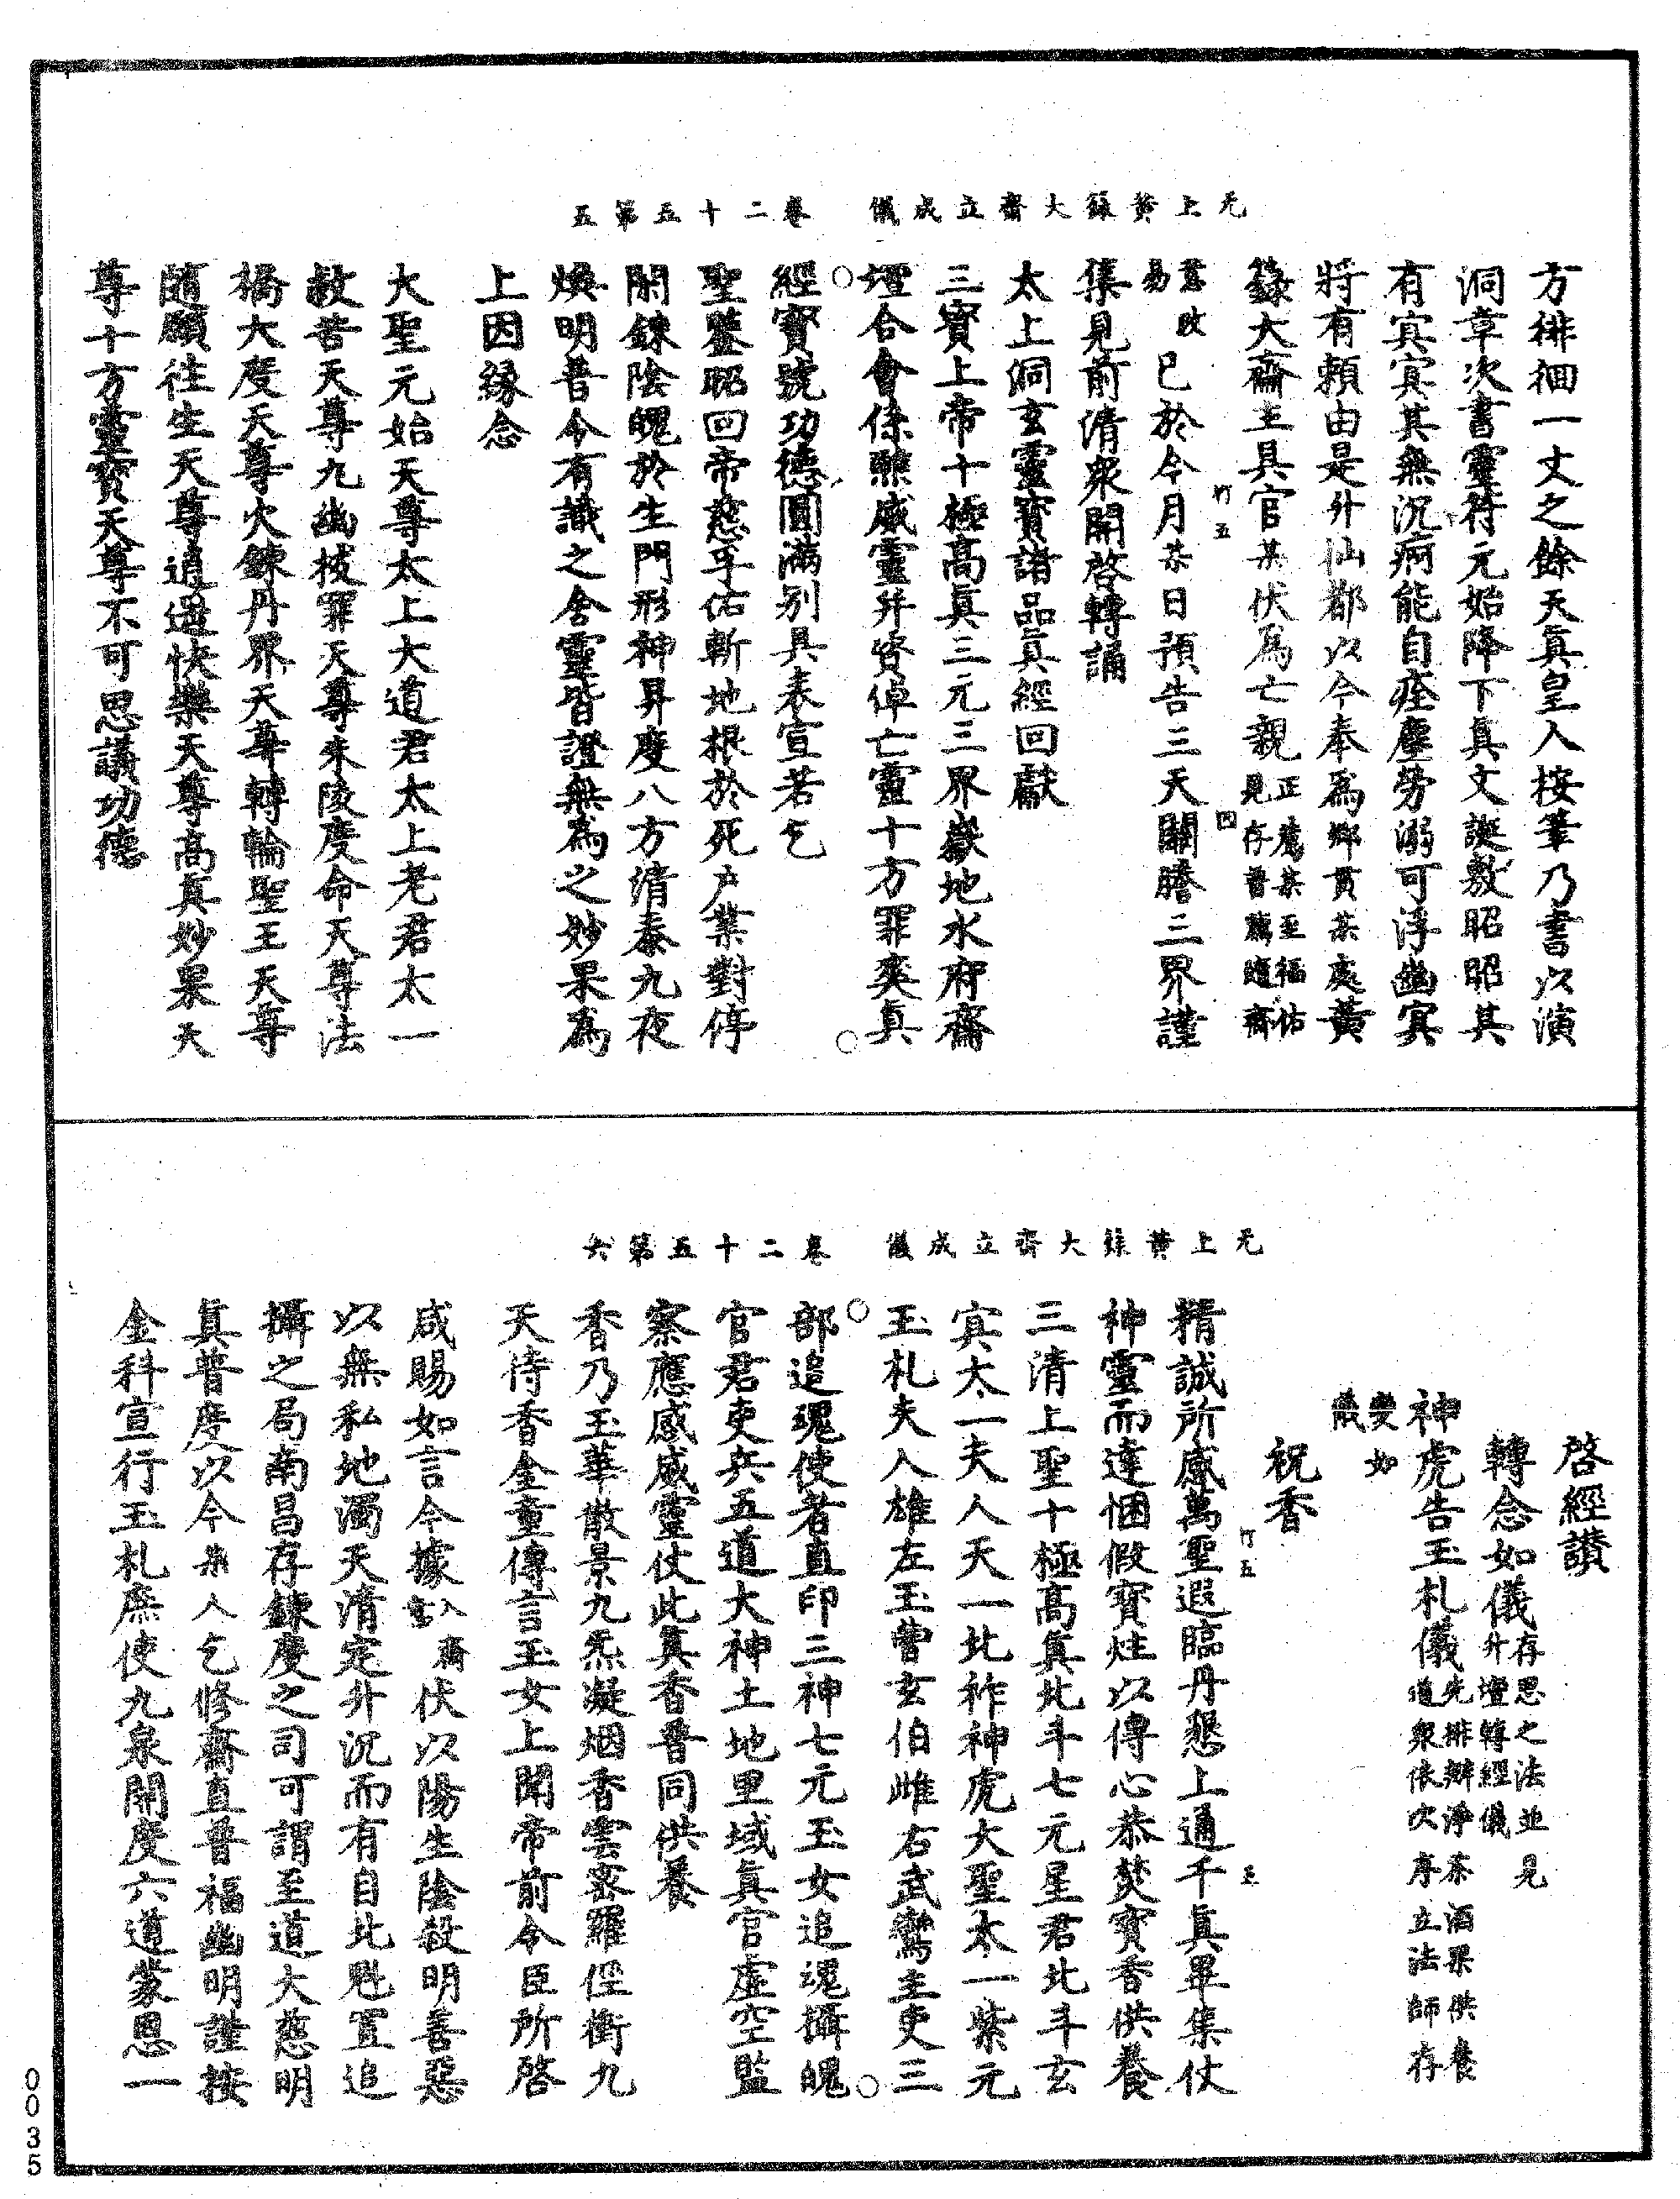 无上黃籙大齋立成儀　卷二十五第五
方徘徊一丈之餘天真皇人按筆乃書以演
洞章次書靈符元始降下真文誕敷昭昭其
有冥冥其無沉痾能自痊塵勞溺可浮幽冥
將有賴由是升仙都以今奉為鄉貫某處黃
籙大齋主具官某伏為亡親正薦某至福佑
見存普薦隨齋
意改
易已於今月某日預告三天關謄三界謹
竹五
四
集見前清衆開啓轉誦
太上洞玄靈寶諸品真經回獻
三寶上帝十極高真三元三界嶽地水府齋
壇合會係醮威靈并資倬亡靈十方罪爽真
經寶號功德圓滿別具表宣若乞
聖鑒昭回帝慈孚佑斬地根於死户業對停
閉鍊陰魄於生門形神昇度八方清泰九夜
煥明普今有識之含靈皆證無為之妙果為
上因緣念
大聖元始天尊太上大道君太上老君太一
救苦天尊九幽拔罪天尊朱陵度命天尊法
橋大度天尊火鍊丹界天尊轉輪聖王天尊
隨願往生天尊逍遙快樂天尊高真妙果天
尊十方靈寶天尊不可思議功德
无上黃籙大齋立成儀　卷二十五第六
啓經讃
轉念如儀存思之法並見
升壇轉經儀
神虎告玉札儀先排辦淨茶酒果供養
道衆依次序立法師存
變如
儀
祝香
竹五
五
精誠所感萬聖遐臨丹懇上通千真畢集仗
神靈而達悃假寶炷以傳心恭焚寶香供養
三清上聖十極高真北斗七元星君北斗玄
冥太一夫人天一北祚神虎大聖太一紫元
玉札夫人雄左玉曹玄伯雌右武鸞主吏三
部追魂使者直印三神七元玉女追魂攝魄
官君吏兵五道大神土地里域真官虛空監
察應感威靈仗此真香普同供養
香乃玉華散景九炁凝烟香雲密羅徑衝九
天侍香金童傳言玉女上聞帝前令臣所啓
咸賜如言今據入齋意伏以陽生陰殺明善惡
以無私地濁天清定升沉而有自北魁置追
攝之局南昌存鍊度之司可謂至道大慈明
真普度以今某人乞修齋直普福幽明謹按
金科宣行玉札庶使九泉開度六道蒙恩一
0035